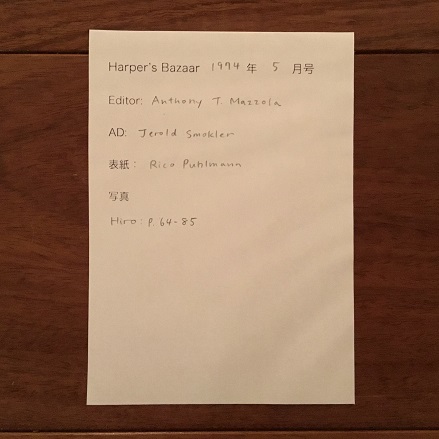 Harper's Bazaar 1974 年 5 月号
Editor: Anthony T. Mazzola
AD: Jerold Smokler
表紙: Rico Puhlmann
写真
Hiro: P. 64-85